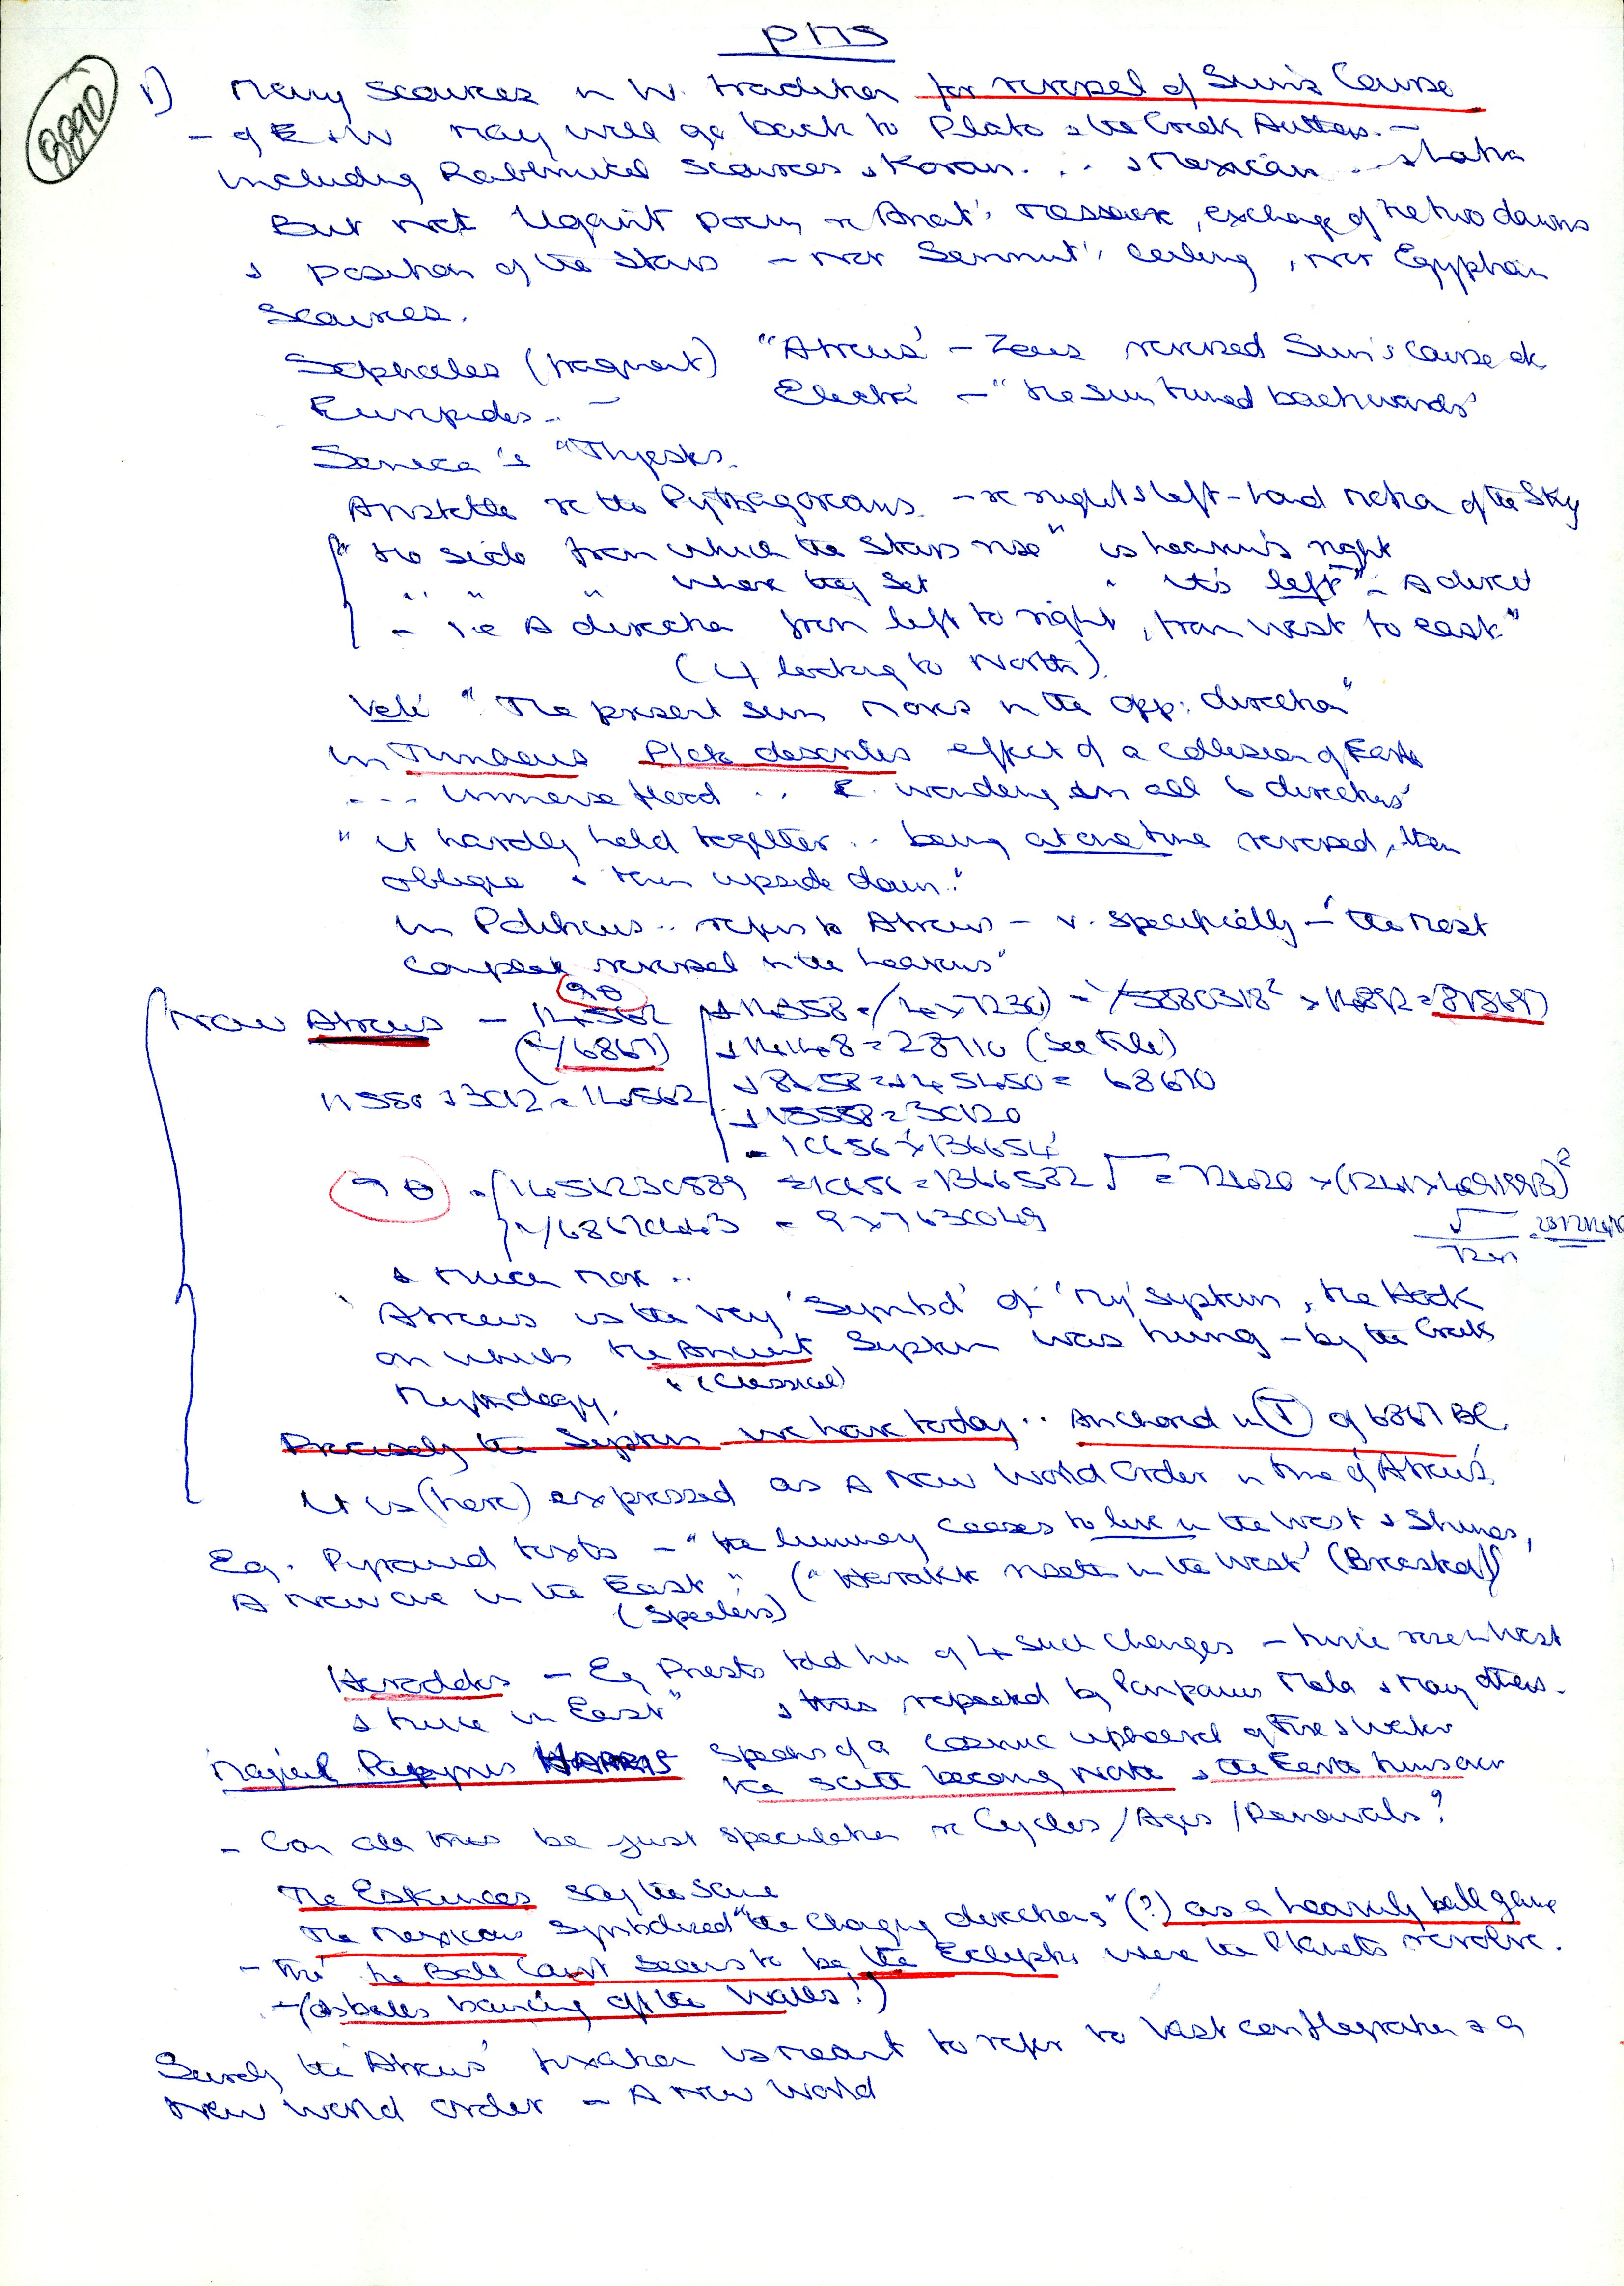 PMS
8890
1) Many sources in W. tradition for reversal of Sun's Course
- of E & W may well go back to Plato & the Greek Authors. -
including Rabbinical sources & Koran... & Mexican
But not Ugarit poem re Anat's massacre, exchange of the two dawns
& position of the Stars - nor Senmut's Ceiling, nor Egyptian
Sources.
Sophocles (fragment) "Atreus" - Zeus reversed Sun's course etc
Euripides .. - Electra - "the sun turned backwards"
Seneca's "Thyestes.
Aristotle re the Pythagoreans - re right & left-hand motion of the Sky
"the side from which the Stars rise" is heaven's right
" " " where they set " it's left" - A direct
- i.e. A direction from left to right, from West to east"
( looking to North)
Veli "The present sun moves in the opp: direction"
In Timaeus Plato describes effect of a collision of Earth
--- immense flood .. E. wandering in all 6 directions'
"it hardly held together .. being at one time reversed, then
oblique & then upside down."
In Politicus .. refers to Atreus - v. specifically - 'the most
complete reversal in the heavens'
Now Atreus - 14562
(√6867)
11550 + 3012 = 14562
+ 14148 = 28710 (See File)
+ 15558 = 30120
& much more ..
Atreus is the very 'Symbol' of 'My' System, the Hook
on which the Ancient System was hung - by the Greek
(Classical)
Mythology.
Precisely the System we have today .. Anchored in T of 6867 BC.
It is (here) expressed as A New World Order in time of 'Atreus'.
Eg. Pyramid texts - "the luminary ceases to live in the West & Shines,
A new one in the East" ("Harakte riseth in the West" (Breasted)
(Speelers)
Herodotus - Eg Priests told him of 4 such changes - twice rose in West
& twice in East" & this repeated by Pomponius Mela & many others -
Magical Papyrus HARRIS speaks of a cosmic upheaval of Fire & Water
the South becoming North & the Earth turns over
- Can all this be just speculation re Cycles/Ages/Renewals?
The Eskimoes say the same
The Mexicans symbolized "the changing directions" (?) as a heavenly ball game
- Tho' the Ball Court seems to be the Ecliptic where the Planets revolve.
- (as balls bouncing off the Walls!)
Surely the 'Atreus' fixation is meant to refer to vast conflagration & a
New World order - A New World